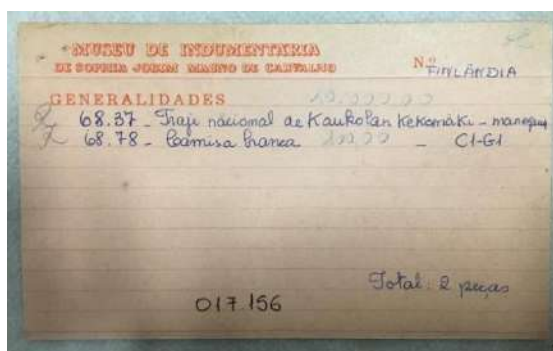 MUSEU DE INDUMENTÁRIA
DE SOPHIA JOBIM MAGNO DE CARVALHO
N.º FINLÂNDIA
GENERALIDADES
68.37 - Traje nacional de Kaukolan Kekomäki - manequim
68.78 - Camisa branca - C1-G1
Total: 2 peças
017.156